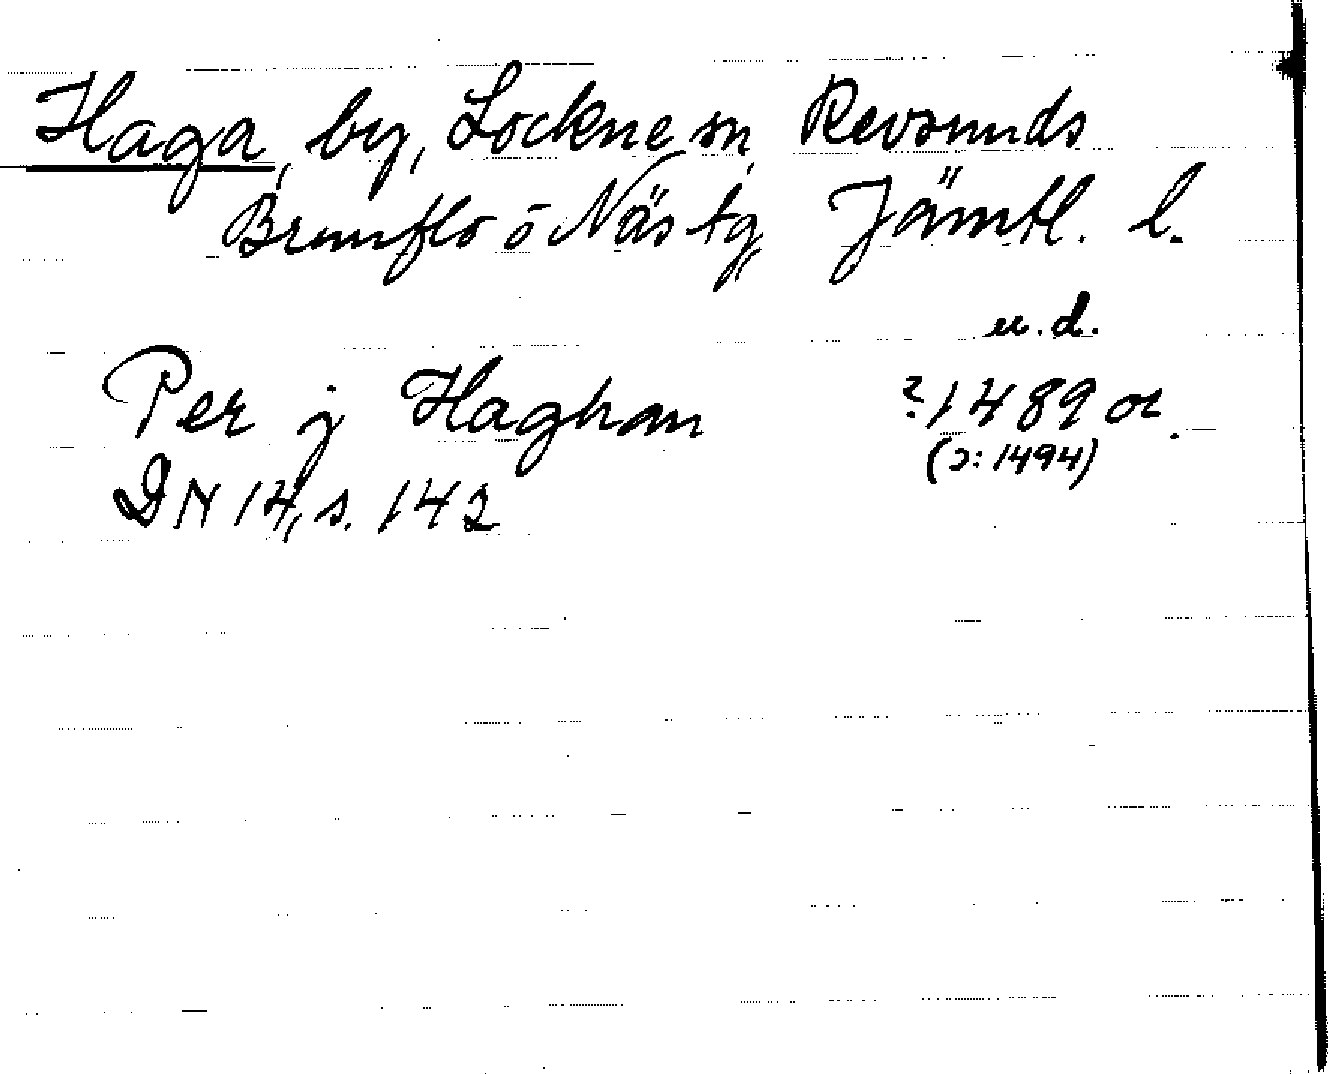 Haga, by, Lockne sn, Revsunds
Brunflo o Näs tg, Jämtl. l.
u.d.
Per j Haghan ?1489 or.
(ɔ: 1494)
DN 14, s. 142